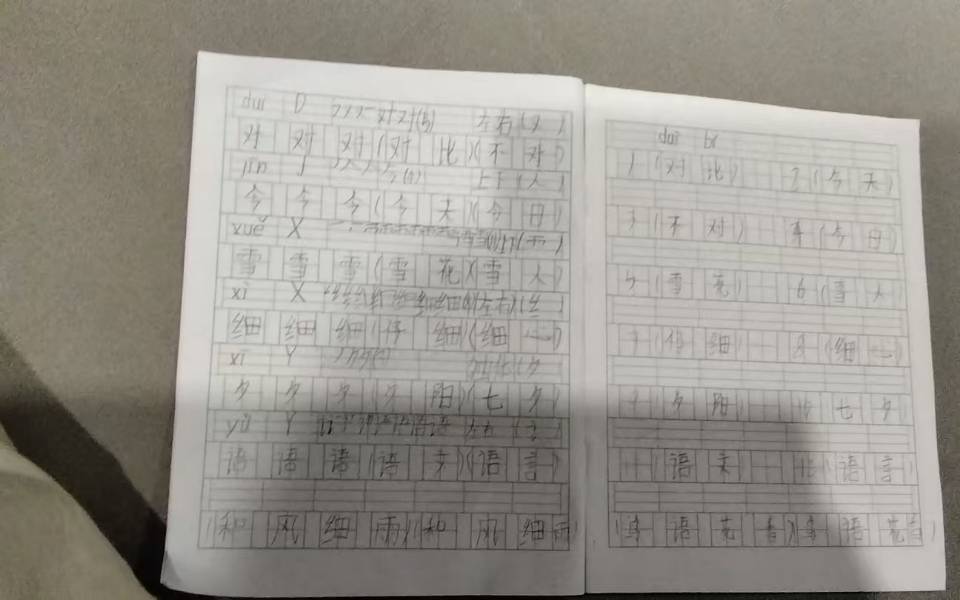 duì D 对(5) 左右(又)
对 对 对(对 比)(不 对)
jīn J 今(4) 上下(人)
今 今 今(今 天)(今 日)
xuě X
雪 雪 雪(雪 花)(雪 人)
xì X (左右)(纟)
细 细 细(仔 细)(细 心)
xī
夕 夕 夕 夕 阳(七 夕)
yǔ Y 左右
语 语 语(语 文)(语 言)
(和 风 细 雨)(和 风 细 雨)
duì bǐ
1(对 比) 2(今 天)
3(不 对) 4(今 日)
5(雪 花) 6(雪 人)
7(仔 细) 8(细 心)
9(夕 阳) 10 七 夕
(语 文) (语 言)
(鸟 语 花 香)(鸟 语 花 香)